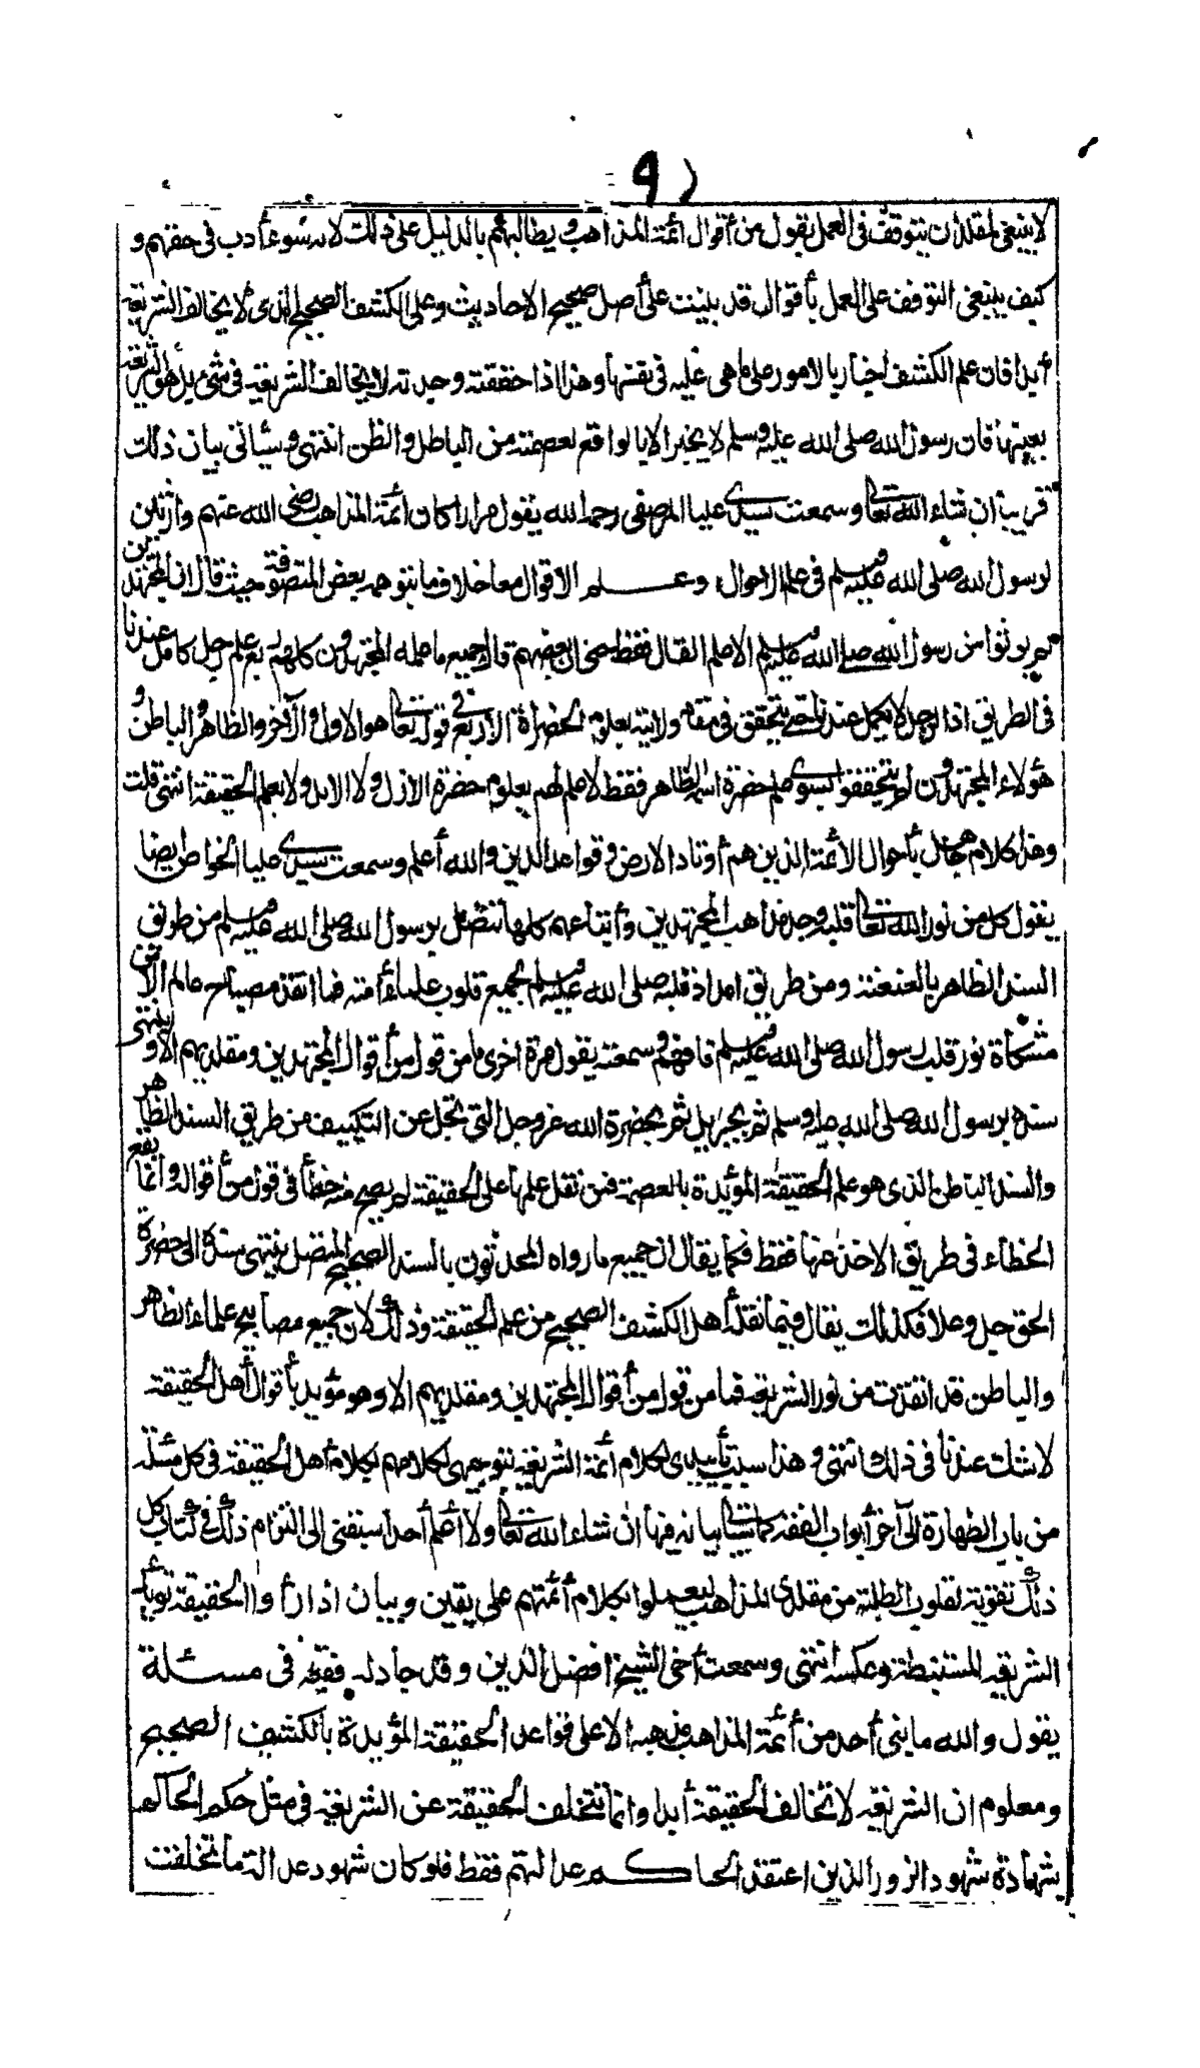 ٩٢
لا ينبغي لمقلد أن يتوقف في العمل بقول من أقوال أئمة المذاهب ويطالبهم بالدليل على ذلك لانه سوء أدب في حقهم و
كيف ينبغي التوقف على العمل بأقوال قد بنيت على أصل صحيح الاحاديث وعلى الكشف الصحيح الذي لا يخالف الشريعة
أبدا فان علم الكشف اخبار بالامور على ما هي عليه في نفسها وهذا اذا حققته وجدته لا يخالف الشريعة في شئ بل هو الشريعة
بعينها فان رسول الله صلى الله عليه وسلم لا يخبر الا بالواقع لعصمته من الباطل والظن انتهى وسيأتي بيان ذلك
قريبا ان شاء الله تعالى وسمعت سيدي عليا المرصفي رحمه الله يقول مرارا كان ائمة المذاهب رضي الله عنهم وارثين
لرسول الله صلى الله عليه وسلم في علم الاحوال وعلم الاقوال معا خلاف ما يتوهمه بعض المتصوفة حيث قال ان المجتهدين
لم يرثوا من رسول الله صلى الله عليه وسلم الا علم القال فقط حتى ان بعضهم قال جميع ما علمه المجتهدون كلهم ربع علم رجل كامل عندنا
في الطريق اذ الرجل لا يكمل عندنا حتى يتحقق في مقام ولايته بعلوم الحضرات الأربع في قوله تعالى هو الاول والآخر والظاهر والباطن و
هؤلاء المجتهدون لم يتحققوا بسوى علم حضرة اسمه الظاهر فقط لا علم لهم بعلوم حضرة الازل ولا الابد ولا بعلم الحقيقة انتهى قلت
وهذا كلام جاهل بأحوال الأئمة الذين هم أوتاد الارض وقواعد الدين والله أعلم وسمعت سيدي عليا الخواص ايضا
يقول كل من نور الله تعالى قلبه وجد مذاهب المجتهدين وأتباعهم كلها تتصل برسول الله صلى الله عليه وسلم من طريق
السند الظاهر بالعنعنة ومن طريق امداد قلبه صلى الله عليه وسلم لجميع قلوب علماء أمته فما اتقد مصباح عالم الا من
مشكاة نور قلب رسول الله صلى الله عليه وسلم فافهم وسمعته يقول مرة اخرى ما من قول من أقوال المجتهدين ومقلديهم الا وينتهي
سنده برسول الله صلى الله عليه وسلم ثم بجبريل ثم بحضرة الله عز وجل التي تجل عن التكييف من طريق السند الظاهر
والسند الباطن الذي هو علم الحقيقة المؤيدة بالعصمة فمن نقل علمها على الحقيقة لم يصح منه خطأ في قول من أقواله وانما يقع
الخطاء في طريق الاخذ عنها فقط فكما يقال ان جميع ما رواه المحدثون بالسند الصحيح المتصل ينتهي سنده الى حضرة
الحق جل وعلا فكذلك يقال فيما نقله أهل الكشف الصحيح من علم الحقيقة وذلك لان جميع مصابيح علماء الظاهر
والباطن قد اتقدت من نور الشريعة فما من قول من أقوال المجتهدين ومقلديهم الا وهو مؤيد بأقوال أهل الحقيقة
لا شك عندنا في ذلك انتهى وهذا سبب تأييدي لكلام أئمة الشريعة بتوجيهي لكلامهم بكلام أهل الحقيقة في كل مسئلة
من باب الطهارة الى آخر أبواب الفقه كما سيأتي بيانه فيها ان شاء الله تعالى ولا أعلم أحدا سبقني الى التزام ذلك في كتاب كل
ذلك تقوية لقلوب الطلبة من مقلدي المذاهب ليعملوا بكلام أئمتهم على يقين وبيان اذا رأوا الحقيقة تؤيد
الشريعة المستنبطة وعكسه انتهى وسمعت أخي الشيخ افضل الدين وقد جادله فقيه في مسئلة
يقول والله ما بنى أحد من أئمة المذاهب مذهبه الا على قواعد الحقيقة المؤيدة بالكشف الصحيح
ومعلوم ان الشريعة لا تخالف الحقيقة أبدا وانما تتخلف الحقيقة عن الشريعة في مثل حكم الحاكم
بشهادة شهود الزور الذين اعتقد الحاكم عدالتهم فقط فلو كان شهود عدالة ما تخلفت